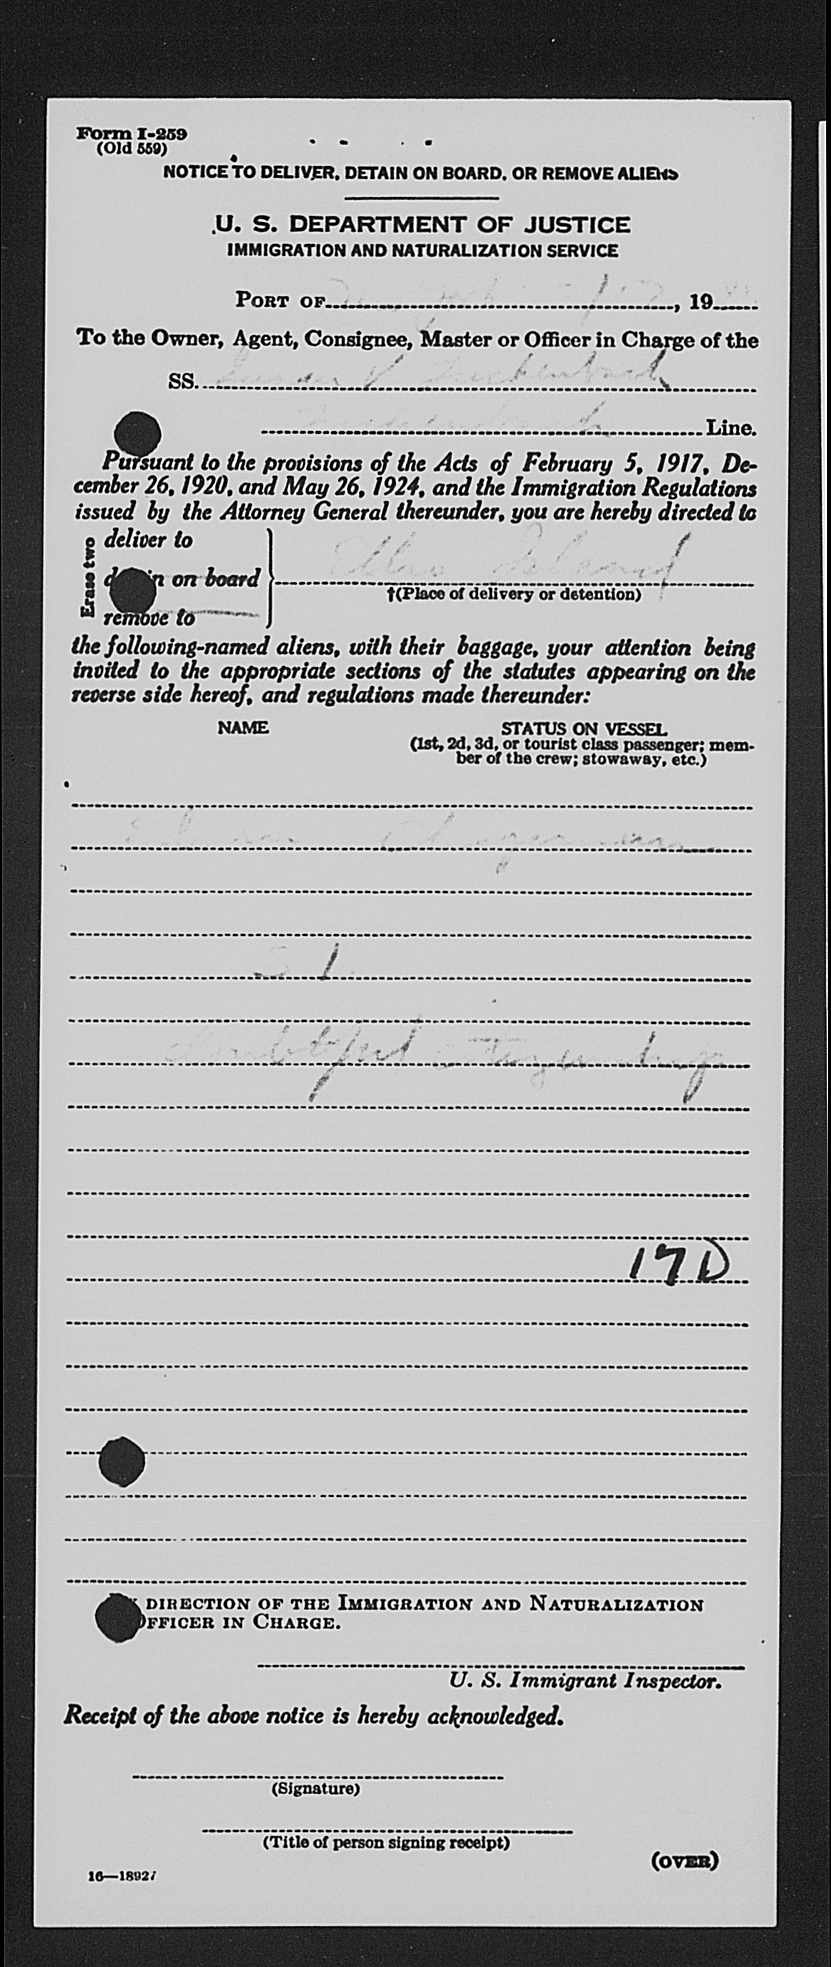 Form I-259
(Old 559)
NOTICE TO DELIVER, DETAIN ON BOARD, OR REMOVE ALIENS
U. S. DEPARTMENT OF JUSTICE
IMMIGRATION AND NATURALIZATION SERVICE
PORT OF , 19
To the Owner, Agent, Consignee, Master or Officer in Charge of the
SS. Susan V Luckenbach
Line.
Pursuant to the provisions of the Acts of February 5, 1917, De-
cember 26, 1920, and May 26, 1924, and the Immigration Regulations
issued by the Attorney General thereunder, you are hereby directed to
Erase two
deliver to
detain on board Ellis Island
†(Place of delivery or detention)
remove to
the following-named aliens, with their baggage, your attention being
invited to the appropriate sections of the statutes appearing on the
reverse side hereof, and regulations made thereunder:
NAME STATUS ON VESSEL
(1st, 2d, 3d, or tourist class passenger; mem-
ber of the crew; stowaway, etc.)
doubtful citizenship
17D
DIRECTION OF THE IMMIGRATION AND NATURALIZATION
OFFICER IN CHARGE.
U. S. Immigrant Inspector.
Receipt of the above notice is hereby acknowledged.
(Signature)
(Title of person signing receipt)
(OVER)
16—18927